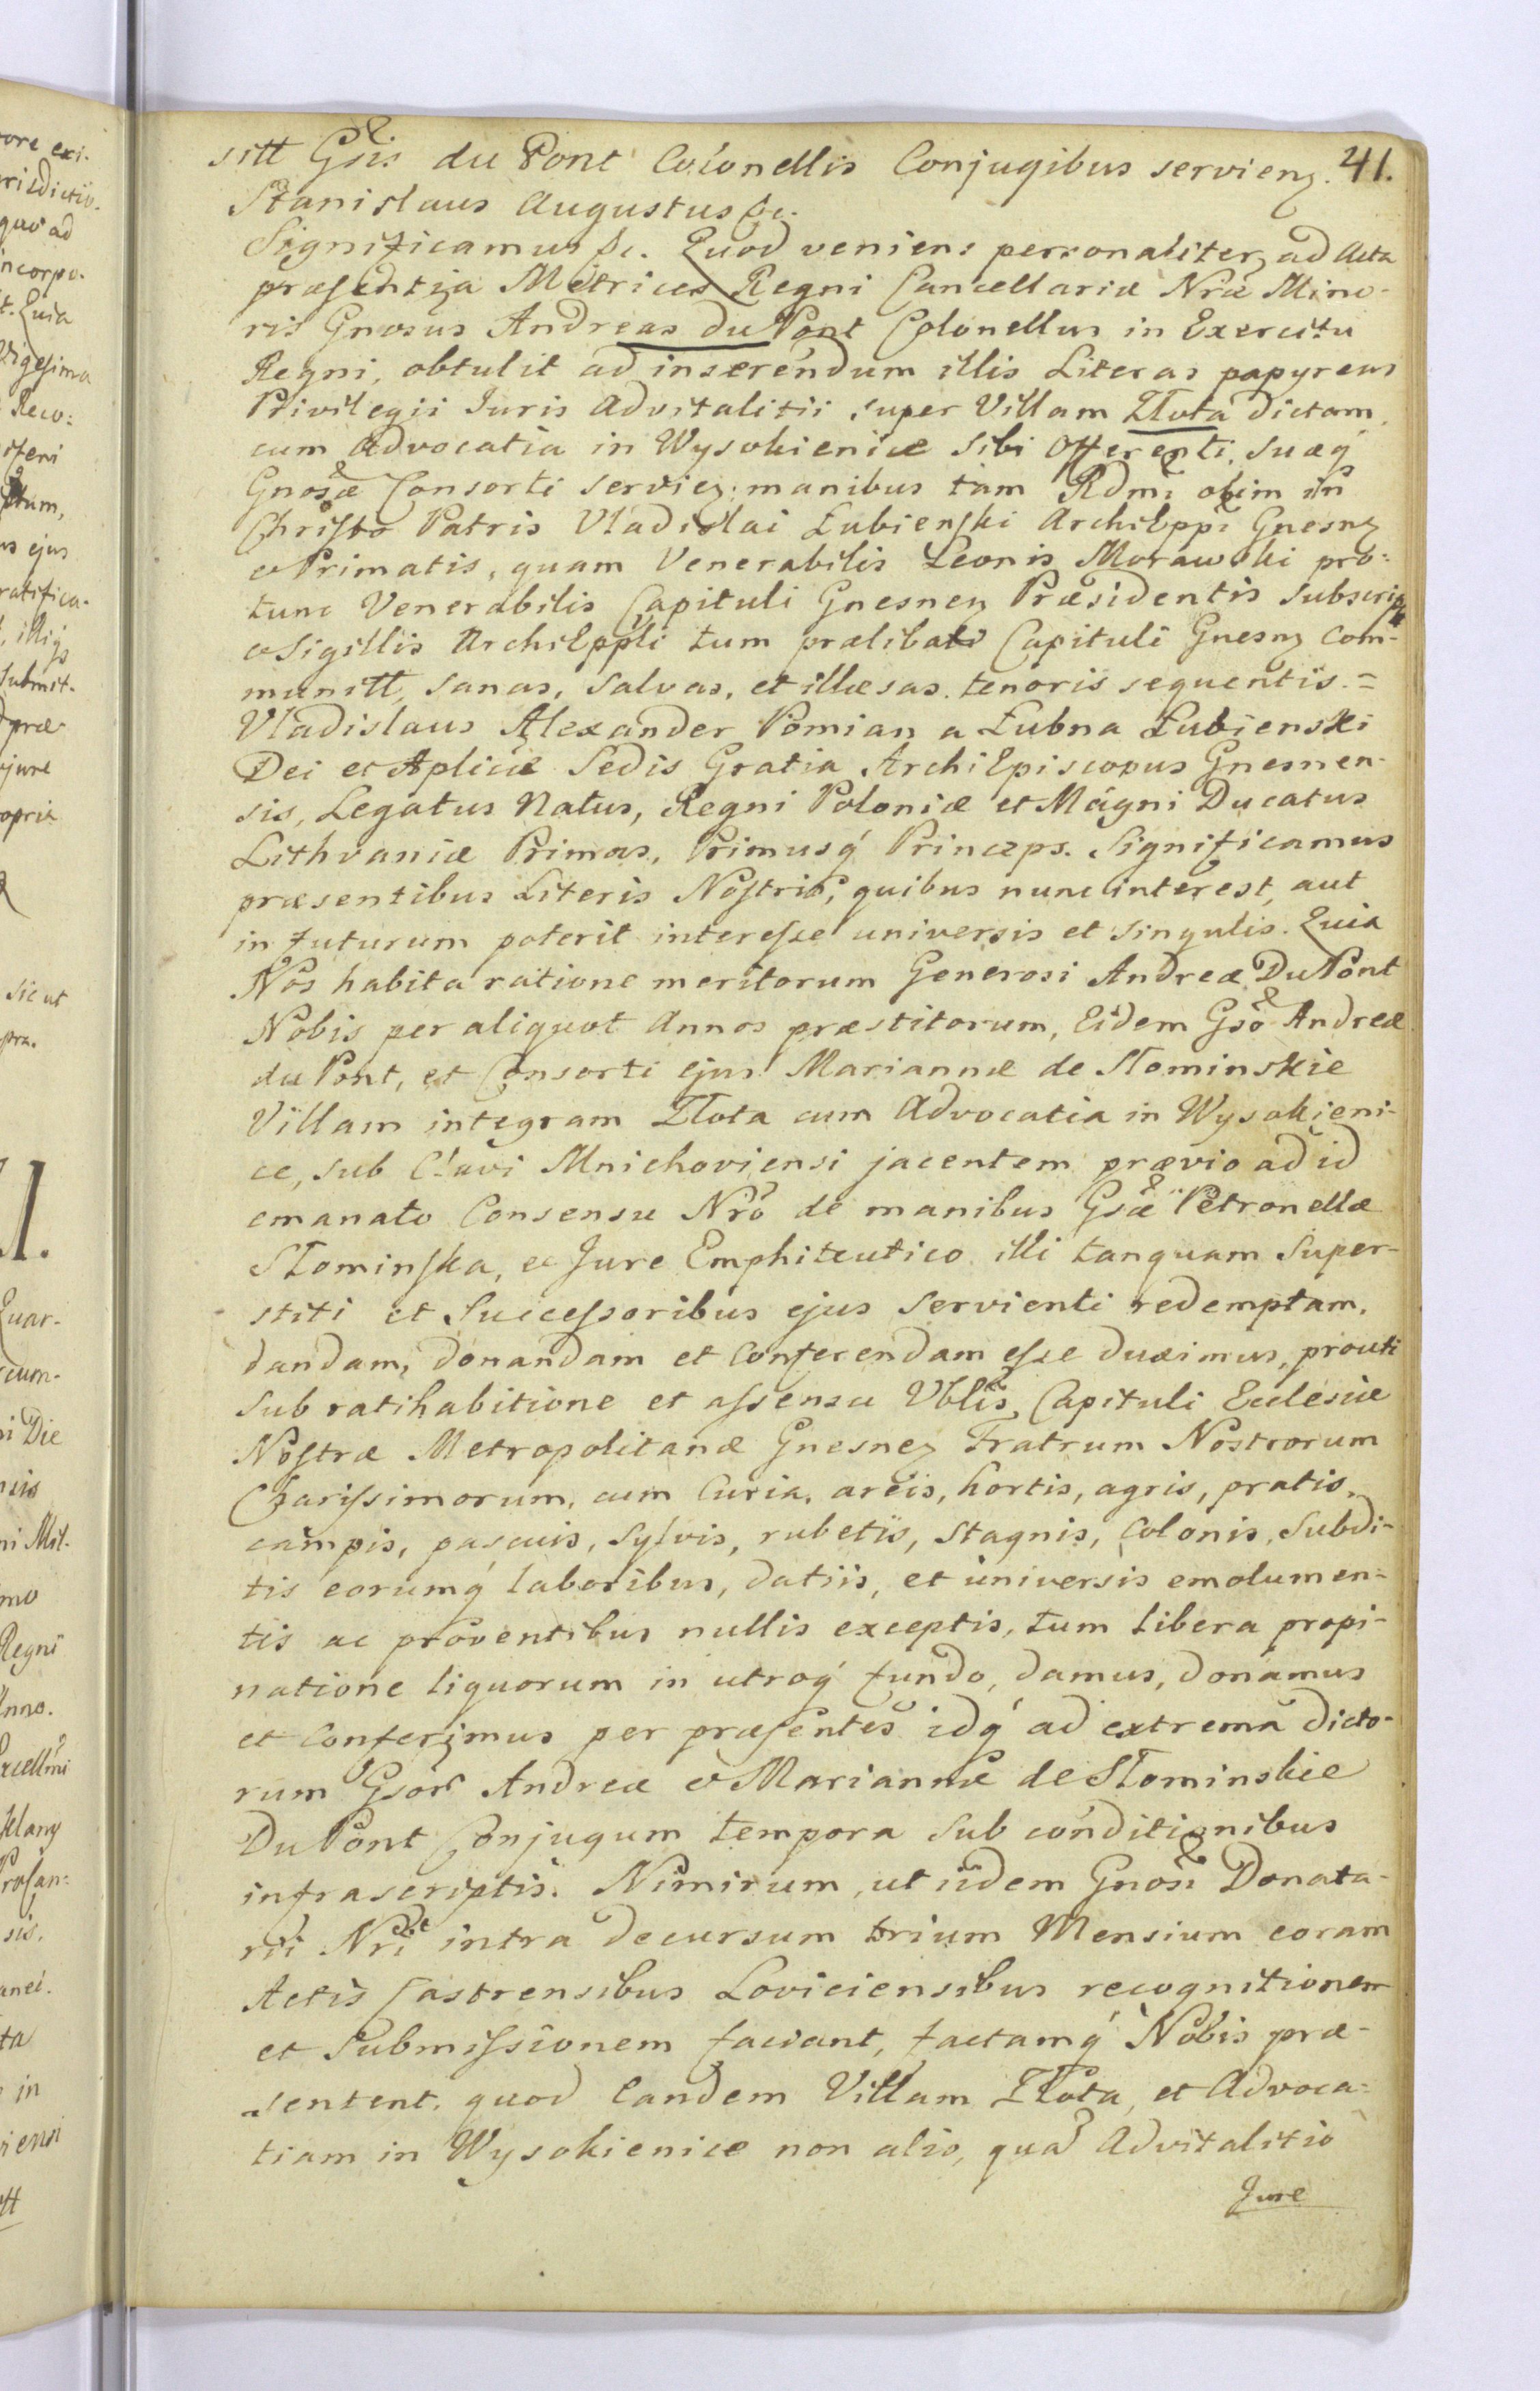 41.
sitt Gsis du Pont Colonellis Conjugibus servienz.
Stanislaus Augustus &c.
Significamus &c. Quod veniens personaliter ad Acta
præsentia Metrices Regni Cancellariæ Nræ Mino-
ris Gnosus Andreas du Pont Colonellus in Exercitu
Regni, obtulit ad inserendum illis Literas papyreas
Privilegii Iuris Advitalitii super Villam Złota dictam,
cum Advocatia in Wysokienice Sibi Offerenti, suæq́
Gnosæ Consorti serviez. manibus tam Rdmi olim in
Christo Patris Vladislai Łubienski ArchiEppi Gnesnz
et Primatis, quam Venerabilis Leonis Morawski pro-
tunc Venerabilis Capituli Gnesnez Præsidentis subscrip
et Sigillis ArchiEppli tum prælibati Capituli Gnesnz Com-
munitt, sanas, salvas, et illæsas. tenoris sequentis. =
Vladislaus Alexander Pomian a Łubna Łubienski
Dei et Aplicæ Sedis Gratia ArchiEpiscopus Gnesnen-
sis, Legatus Natus, Regni Poloniæ et Magni Ducatus
Lithvaniæ Primas, Primusq́ Princeps. Significamus
præsentibus Literis Nostris, quibus nunc interest, aut
in futurum poterit interesse universis et singulis. Quia
Nos habita ratione meritorum Generosi Andreæ Du Pont
Nobis per aliquot Annos præstitorum, Eidem Gso Andreæ
du Pont, et Consorti ejus Mariannæ de Słominskie
Villam integram Złota cum Advocatia in Wysokieni-
ce, sub Clavi Mnichoviensi jacentem prævio ad id
emanato Consensu Nro de manibus Gsæ Petronellæ
Słominska, et Jure Emphiteutico illi tanquam Super-
stiti et Successoribus ejus servienti redemptam,
dandam, donandam et Conferendam esse duximus, prouti
Sub ratihabitione et assensu Vblis Capituli Ecclesiæ
Nostræ Metropolitanæ Gnesnez Fratrum Nostrorum
Charissimorum, cum Curia, areis, hortis, agris, pratis,
campis, pascuis, Sylvis, rubetis, Stagnis, Colonis, Subdi-
tis eorumq́ laboribus, datiis, et universis emolumen-
tis ac proventibus nullis exceptis, tum libera propi-
natione liquorum in utroq́ fundo, damus, donamus
et Conferimus per præsentes idq́ ad extrema dicto-
rum Gsor Andreæ et Mariannæ de Słominskie
Du Pont Conjugum tempora Sub conditionibus
infrascriptis. Nimirum, ut iidem Gnosi Donata-
rii Nri intra decursum trium Mensium coram
Actis Castrensibus Loviciensibus recognitionem
et Submissionem faciant, factamq́ Nobis præ-
sentent, quod Eandem Villam Złota, et Advoca-
tiam in Wysokienice non alio, qua Advitalitio
Jure